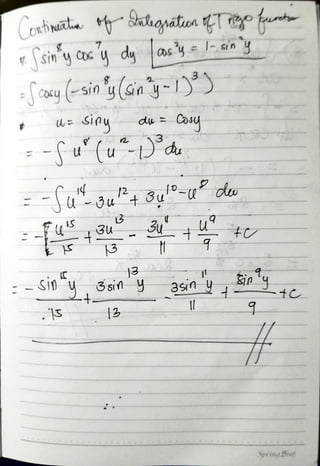 Continuation of Integration of Trigo function
∫ sin⁸y cos⁷y dy | cos²y = 1 - sin²y
= ∫ cosy (-sin⁸y (sin²y - 1)³)
u = siny du = cosy
= - ∫ u⁸ (u² - 1)³ du
= - ∫ u¹⁴ - 3u¹² + 3u¹⁰ - u⁸ du
= - u¹⁵/15 + 3u¹³/13 - 3u¹¹/11 + u⁹/9 + c
= - sin¹⁵y/15 + 3sin¹³y/13 - 3sin¹¹y/11 + sin⁹y/9 + c
∴
Spring Leaf